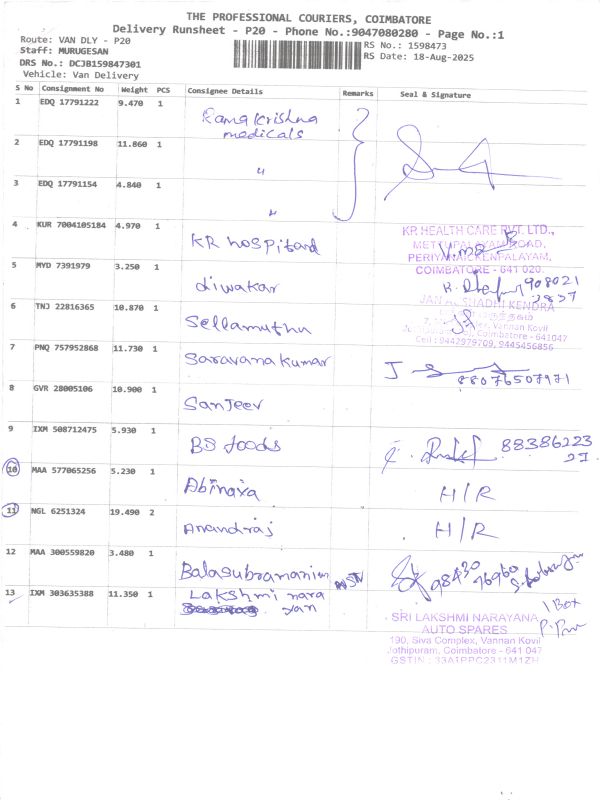 THE PROFESSIONAL COURIERS, COIMBATORE
Delivery Runsheet - P20 - Phone No.:9047080280 - Page No.:1
Route: VAN DLY - P20
Staff: MURUGESAN
DRS No.: DCJB159847301
Vehicle: Van Delivery
RS No.: 1598473
RS Date: 18-Aug-2025
S No Consignment No Weight PCS Consignee Details Remarks Seal & Signature
1 EDQ 17791222 9.470 1 Ramakrishna medicals
2 EDQ 17791198 11.860 1 "
3 EDQ 17791154 4.840 1 "
4 KUR 7004105184 4.970 1 KR hospitand
KR HEALTH CARE PVT. LTD.,
METTUPALAYAM ROAD,
PERIYANAICKENPALAYAM,
COIMBATORE - 641 020.
5 MYD 7391979 3.250 1 diwakar
908021
6 TNJ 22816365 10.870 1 Sellamuthu
JAN AUSHADHI KENDRA
Vannan Kovil
Coimbatore - 641047
Cell : 9442979709, 9445456856
7 PNQ 757952868 11.730 1 Saravanakumar
88076507971
8 GVR 28005106 10.900 1 Sanjeev
9 IXM 508712475 5.930 1 BS foods
88386223
21
10 MAA 577065256 5.230 1 Abinaya H/R
11 NGL 6251324 19.490 2 Anandraj H/R
12 MAA 300559820 3.480 1 Balasubramanian
98430 76960
13 IXM 303635388 11.350 1 Lakshmi nara
yan
1 Box
SRI LAKSHMI NARAYANA
AUTO SPARES
190, Siva Complex, Vannan Kovil
Jothipuram, Coimbatore - 641 047
GSTIN : 33AIPPC2311M1ZH